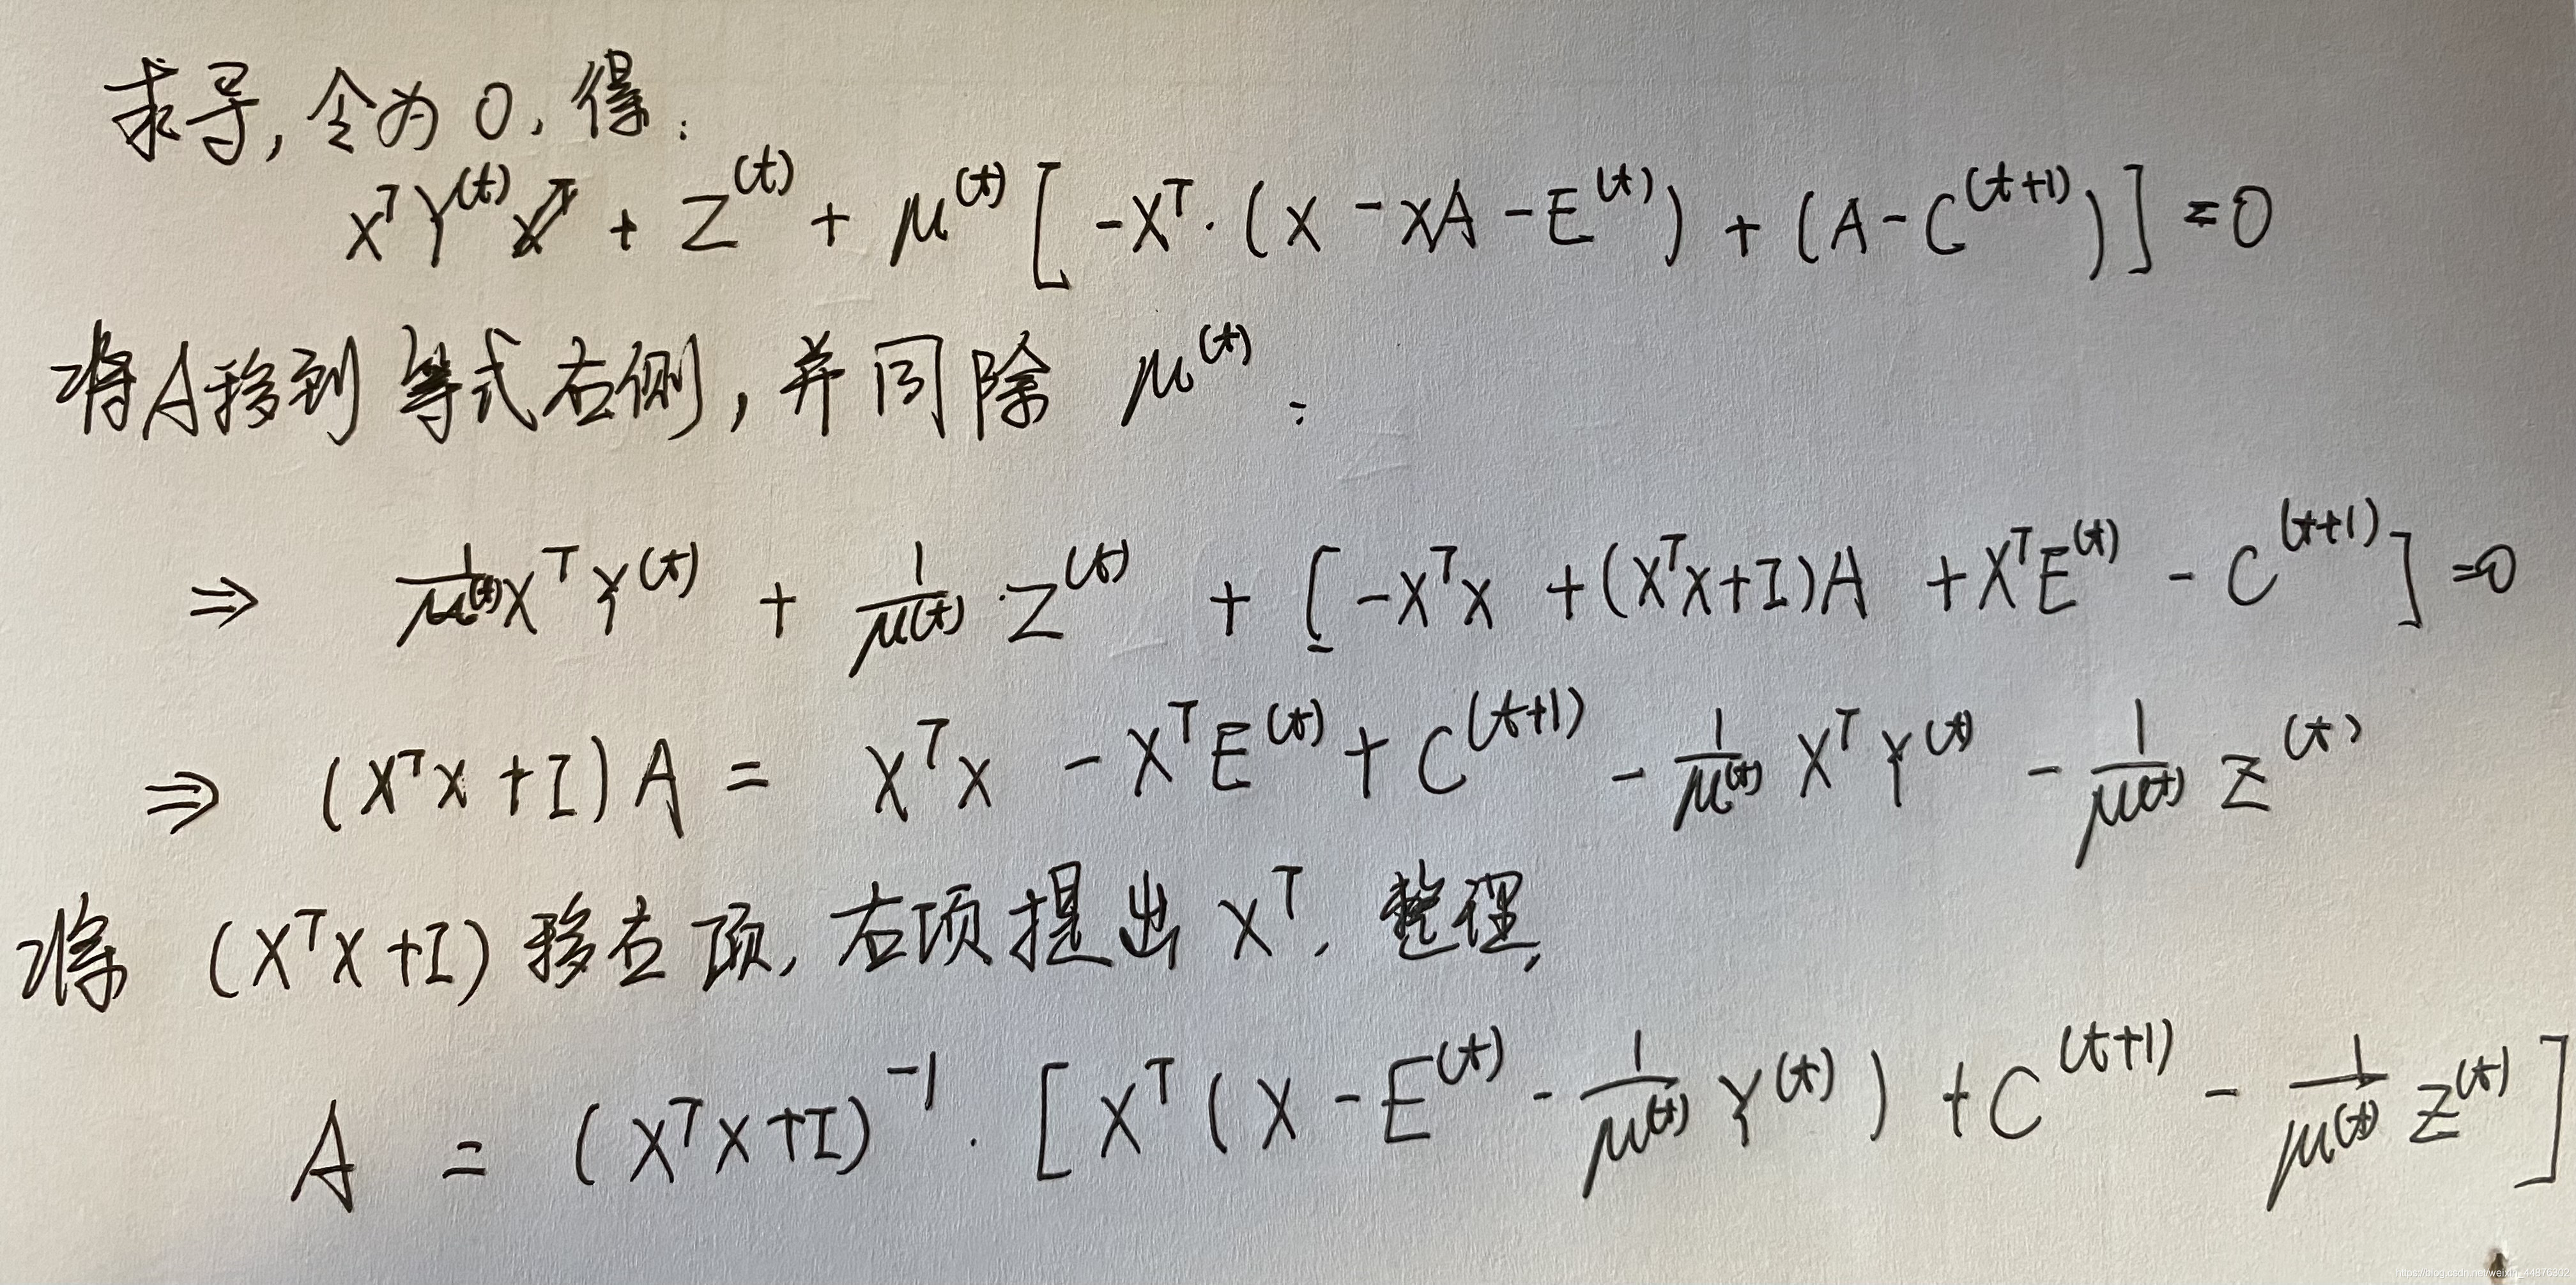 求导,令为 0, 得:
X^T Y^(t) + Z^(t) + μ^(t) [ -X^T · (X - XA - E^(t)) + (A - C^(t+1)) ] = 0
将A移到等式右侧,并同除 μ^(t) :
⇒ 1/μ^(t) X^T Y^(t) + 1/μ^(t) · Z^(t) + [ -X^T X + (X^T X + I)A + X^T E^(t) - C^(t+1) ] = 0
⇒ (X^T X + I) A = X^T X - X^T E^(t) + C^(t+1) - 1/μ^(t) X^T Y^(t) - 1/μ^(t) Z^(t)
将 (X^T X + I) 移右项, 右项提出 X^T, 整理,
A = (X^T X + I)^-1 · [ X^T (X - E^(t) - 1/μ^(t) Y^(t)) + C^(t+1) - 1/μ^(t) Z^(t) ]